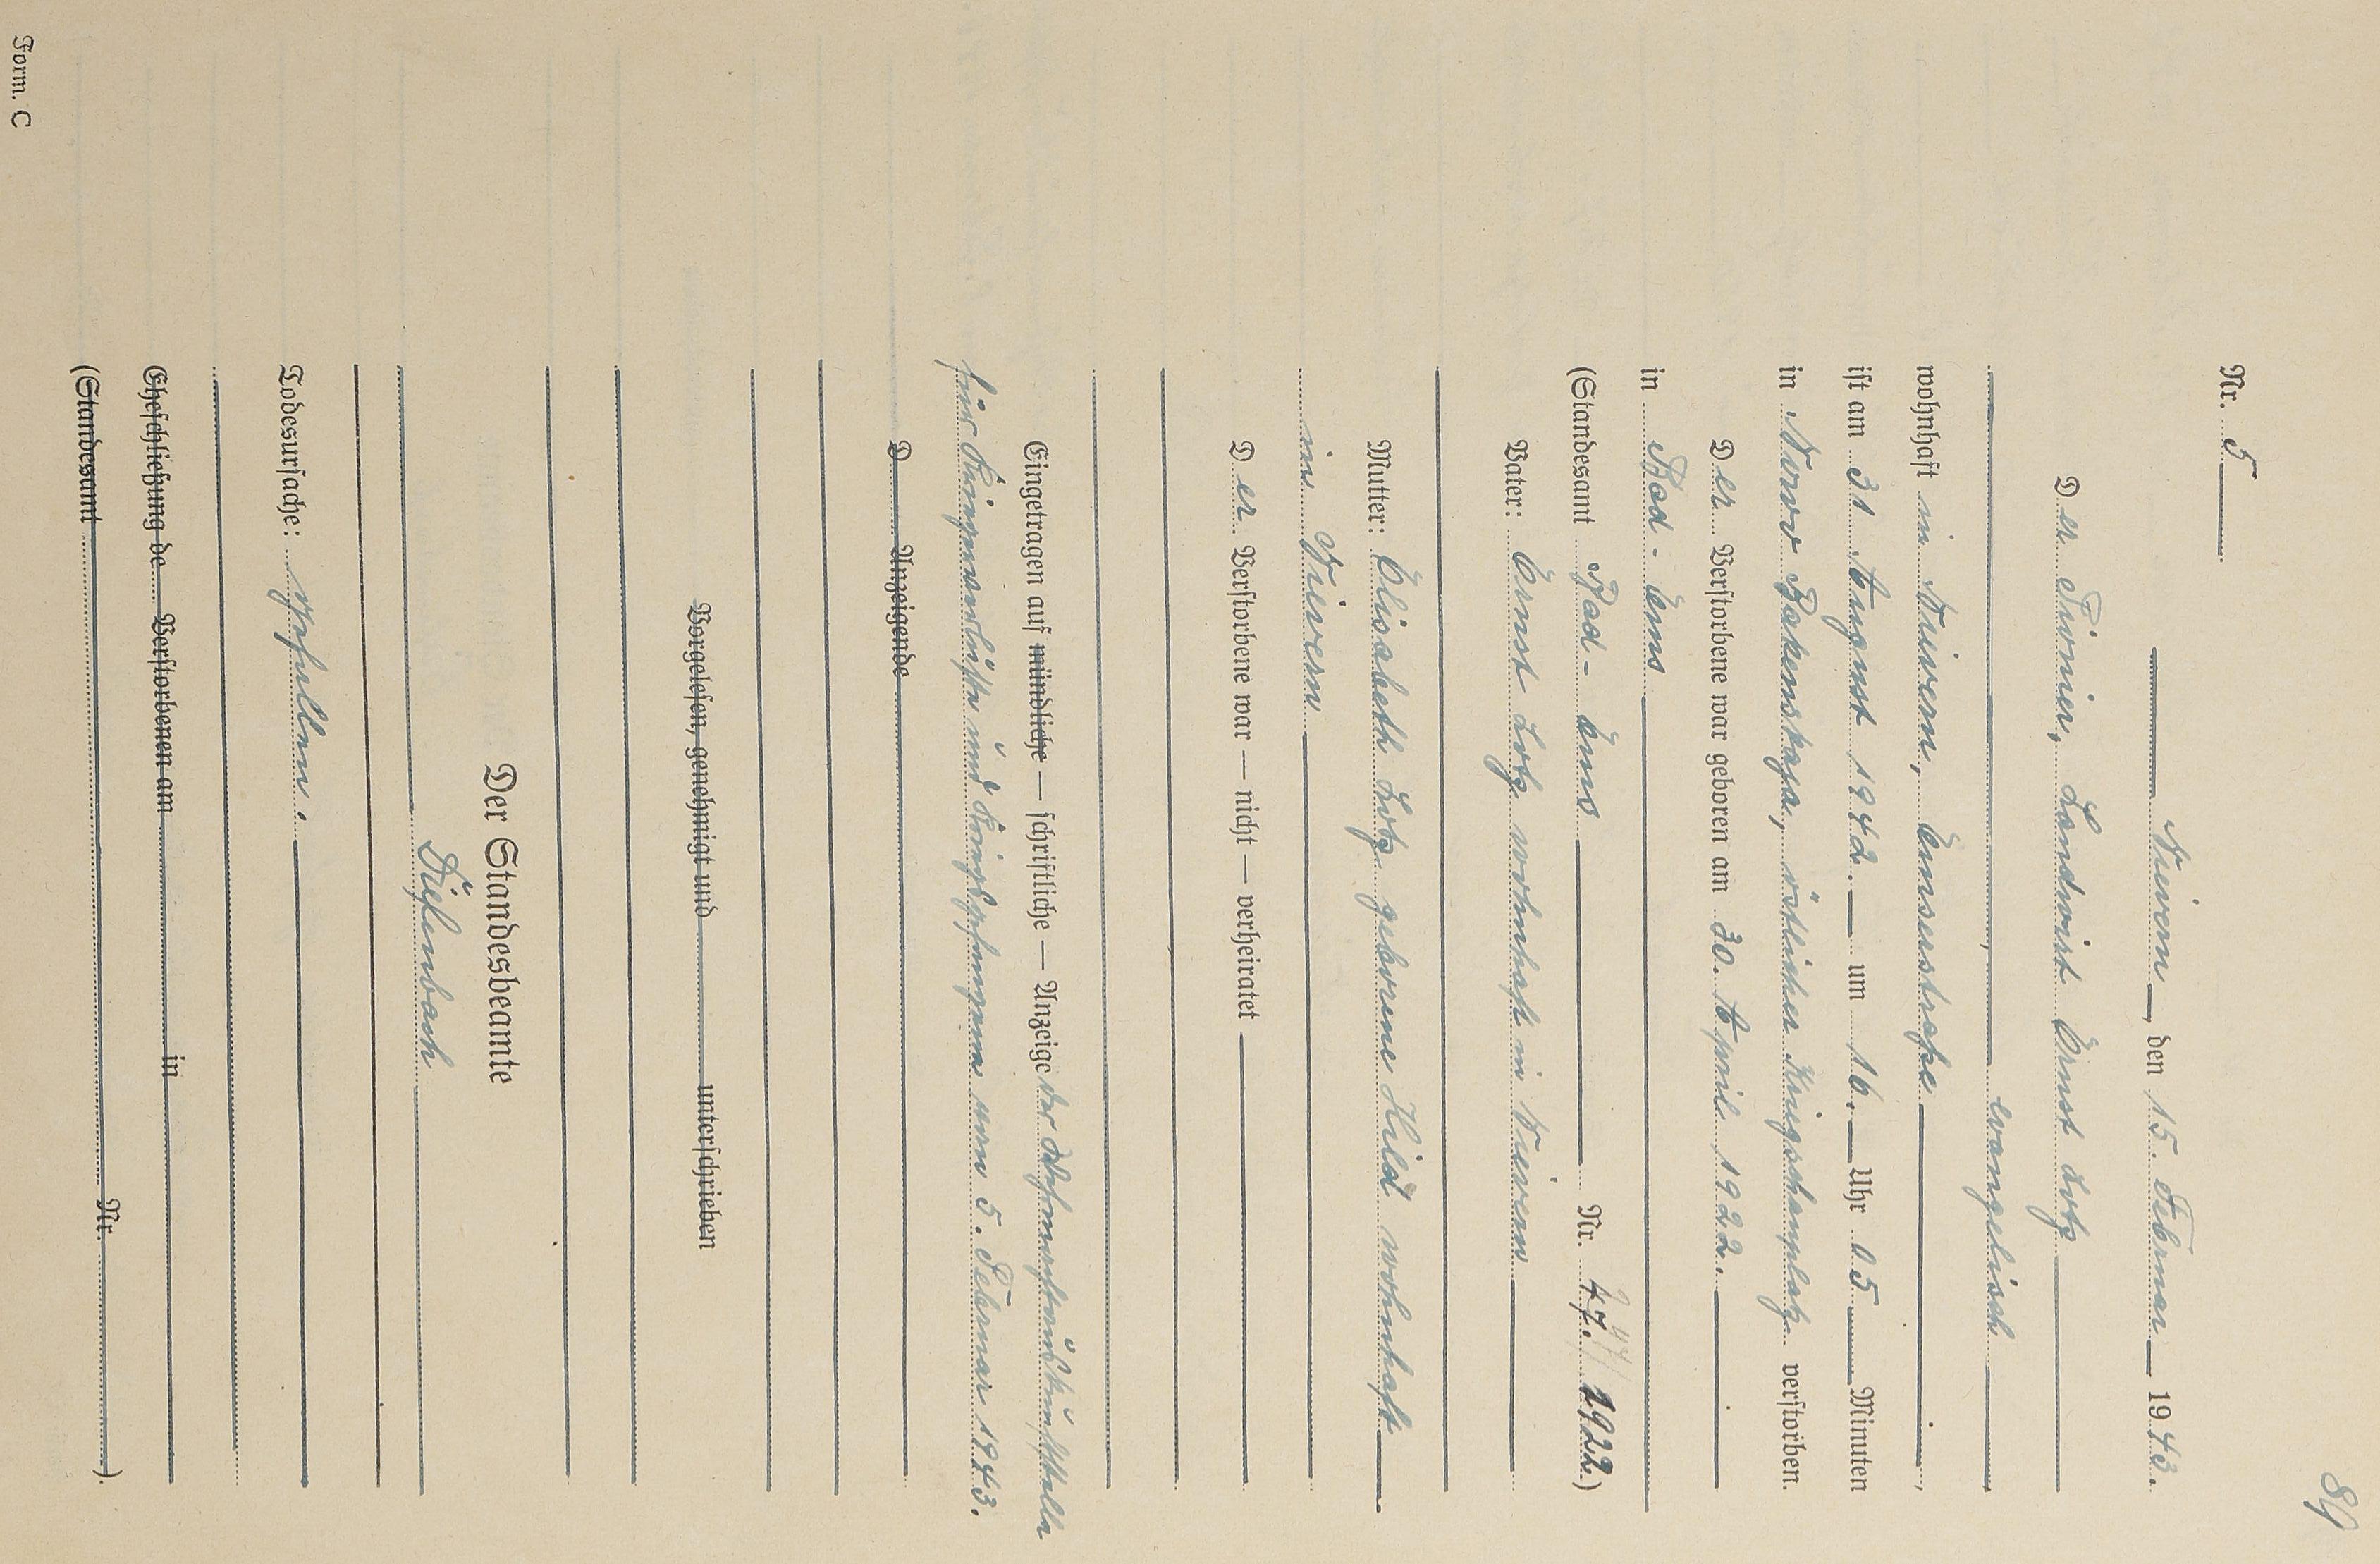 89
Nr. 5
Nievern, den 15. Februar 1943.
Der Pionier, Landwirt Ernst Lotz
evangelisch
wohnhaft in Nievern, Emserstraße,
ist am 31 August 1942. um 16. Uhr 05 Minuten
in Nowo Bakanskaja, östlicher Kriegsschauplatz verstorben.
Der Verstorbene war geboren am 30. April 1922.
in Bad-Ems
(Standesamt Bad-Ems Nr. 47./1922)
Vater: Ernst Lotz wohnhaft in Nievern
Mutter: Elisabeth Lotz geborene Hild wohnhaft
in Nievern
Der Verstorbene war — nicht — verheiratet
Eingetragen auf mündliche — schriftliche — Anzeige der Wehrmachtauskunftstelle
für Kriegerverluste und Kriegsgefangene vom 5. Februar 1943.
D Anzeigende
Vorgelesen, genehmigt und unterschrieben
Der Standesbeamte
Diefenbach
Todesursache: gefallen.
Eheschließung de Verstorbenen am in
(Standesamt Nr. ).
Form. C